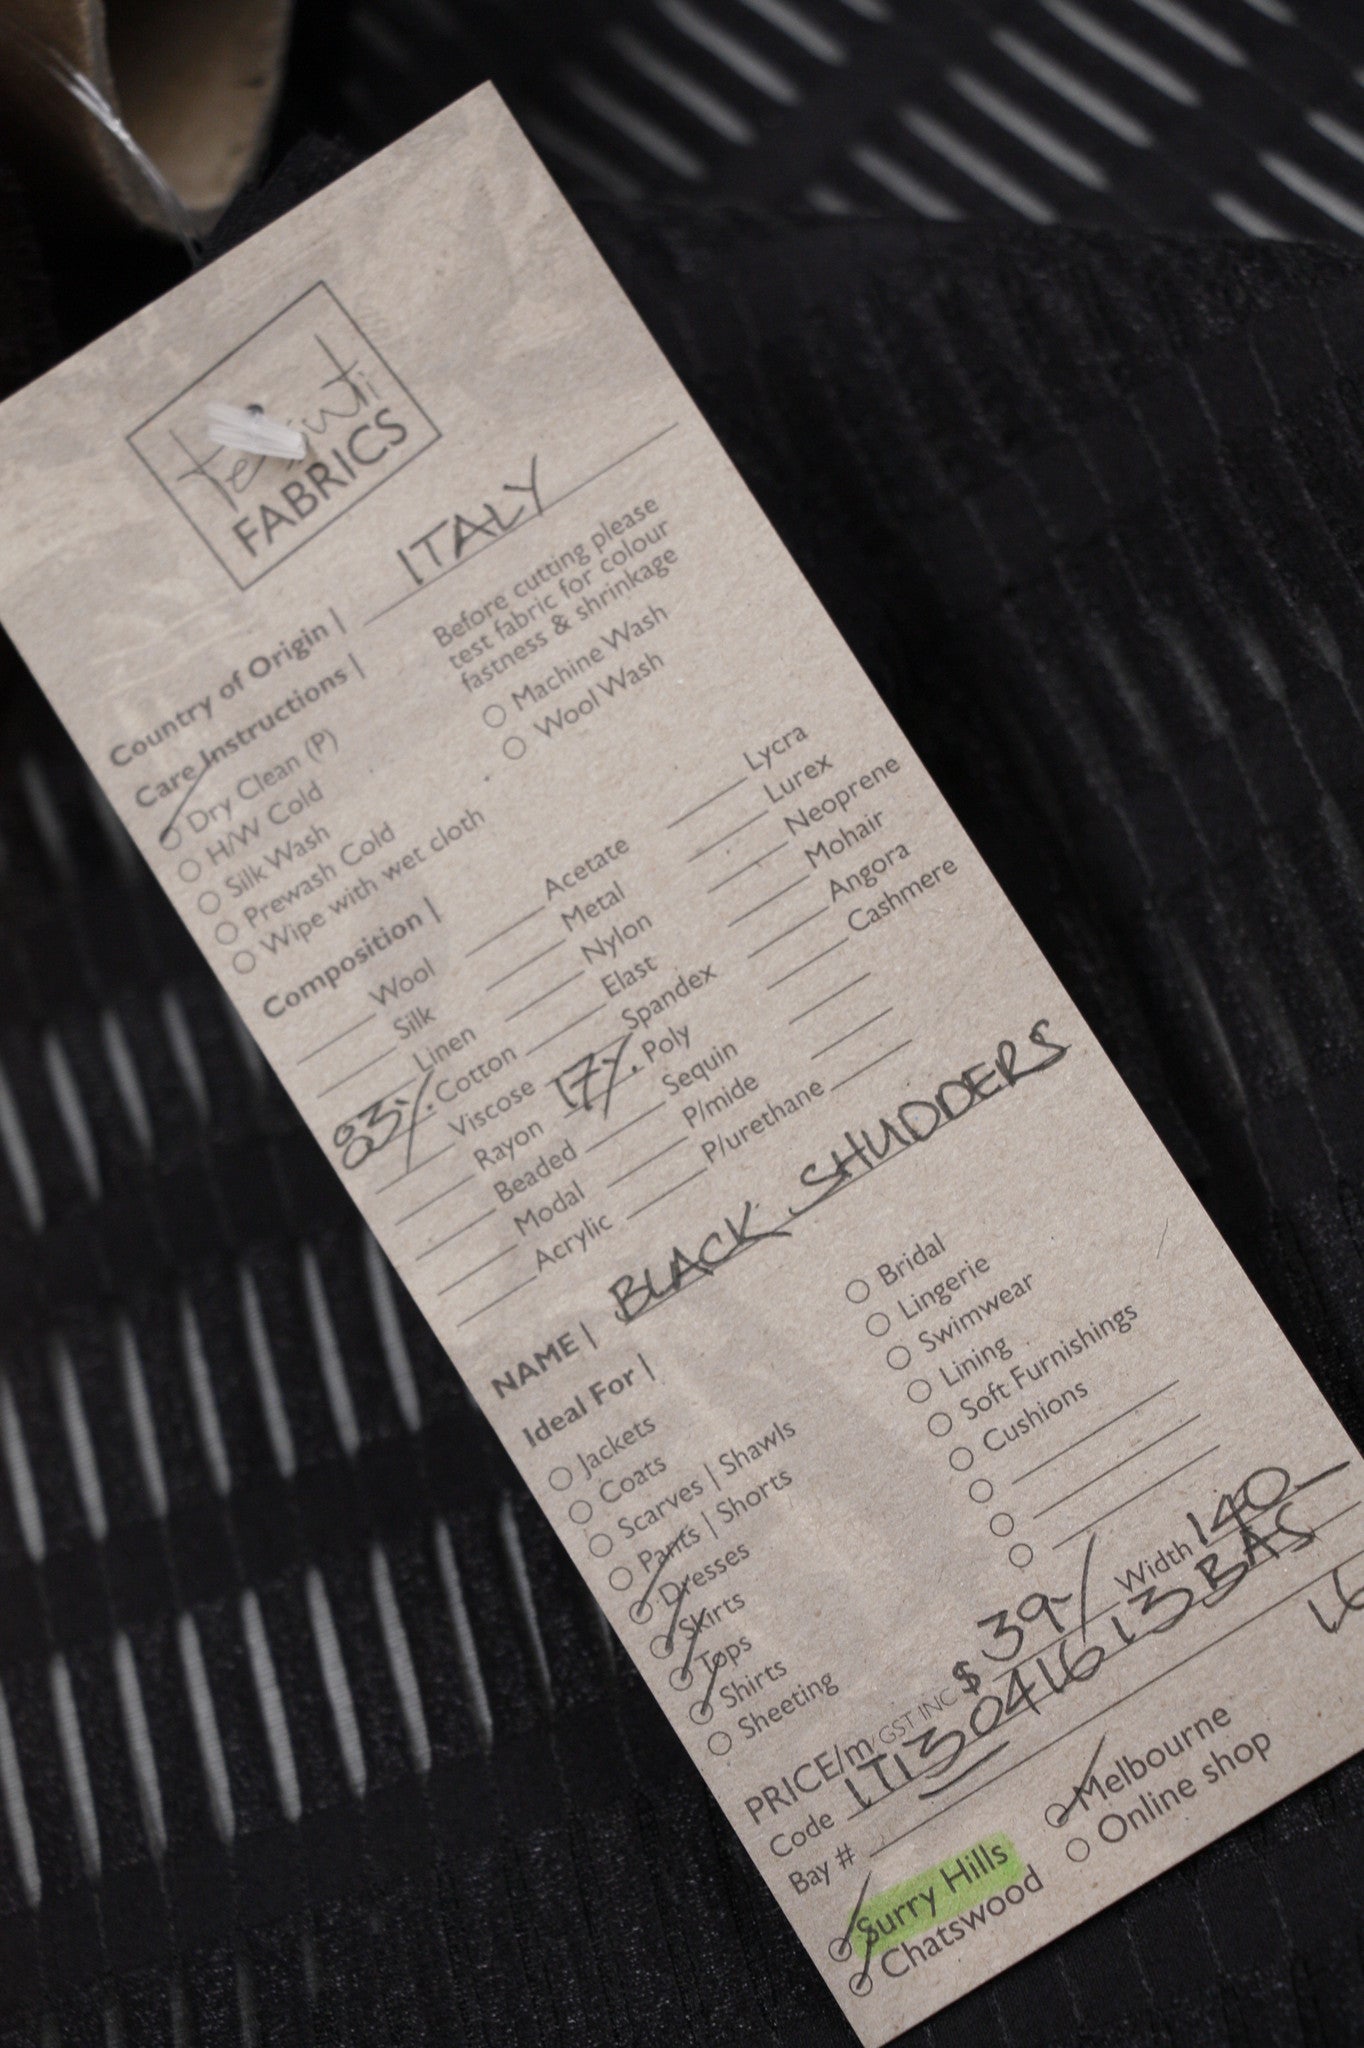 FABRICS
Country of Origin | ITALY
Care Instructions |
Before cutting please
test fabric for colour
fastness & shrinkage
Dry Clean (P)
H/W Cold
Silk Wash
Prewash Cold
Wipe with wet cloth
Machine Wash
Wool Wash
Composition |
Wool
Silk
Linen
83% Cotton
Viscose
Rayon
Beaded
Modal
Acrylic
Acetate
Metal
Nylon
Elast
Spandex
17% Poly
Sequin
P/mide
P/urethane
Lycra
Lurex
Neoprene
Mohair
Angora
Cashmere
NAME | BLACK SHUDDERS
Ideal For |
Jackets
Coats
Scarves | Shawls
Pants | Shorts
Dresses
Skirts
Tops
Shirts
Sheeting
Bridal
Lingerie
Swimwear
Lining
Soft Furnishings
Cushions
PRICE/m GST INC $39-/ Width 140
Code IT13041613BAS
Bay # 16
Surry Hills
Chatswood
Melbourne
Online shop